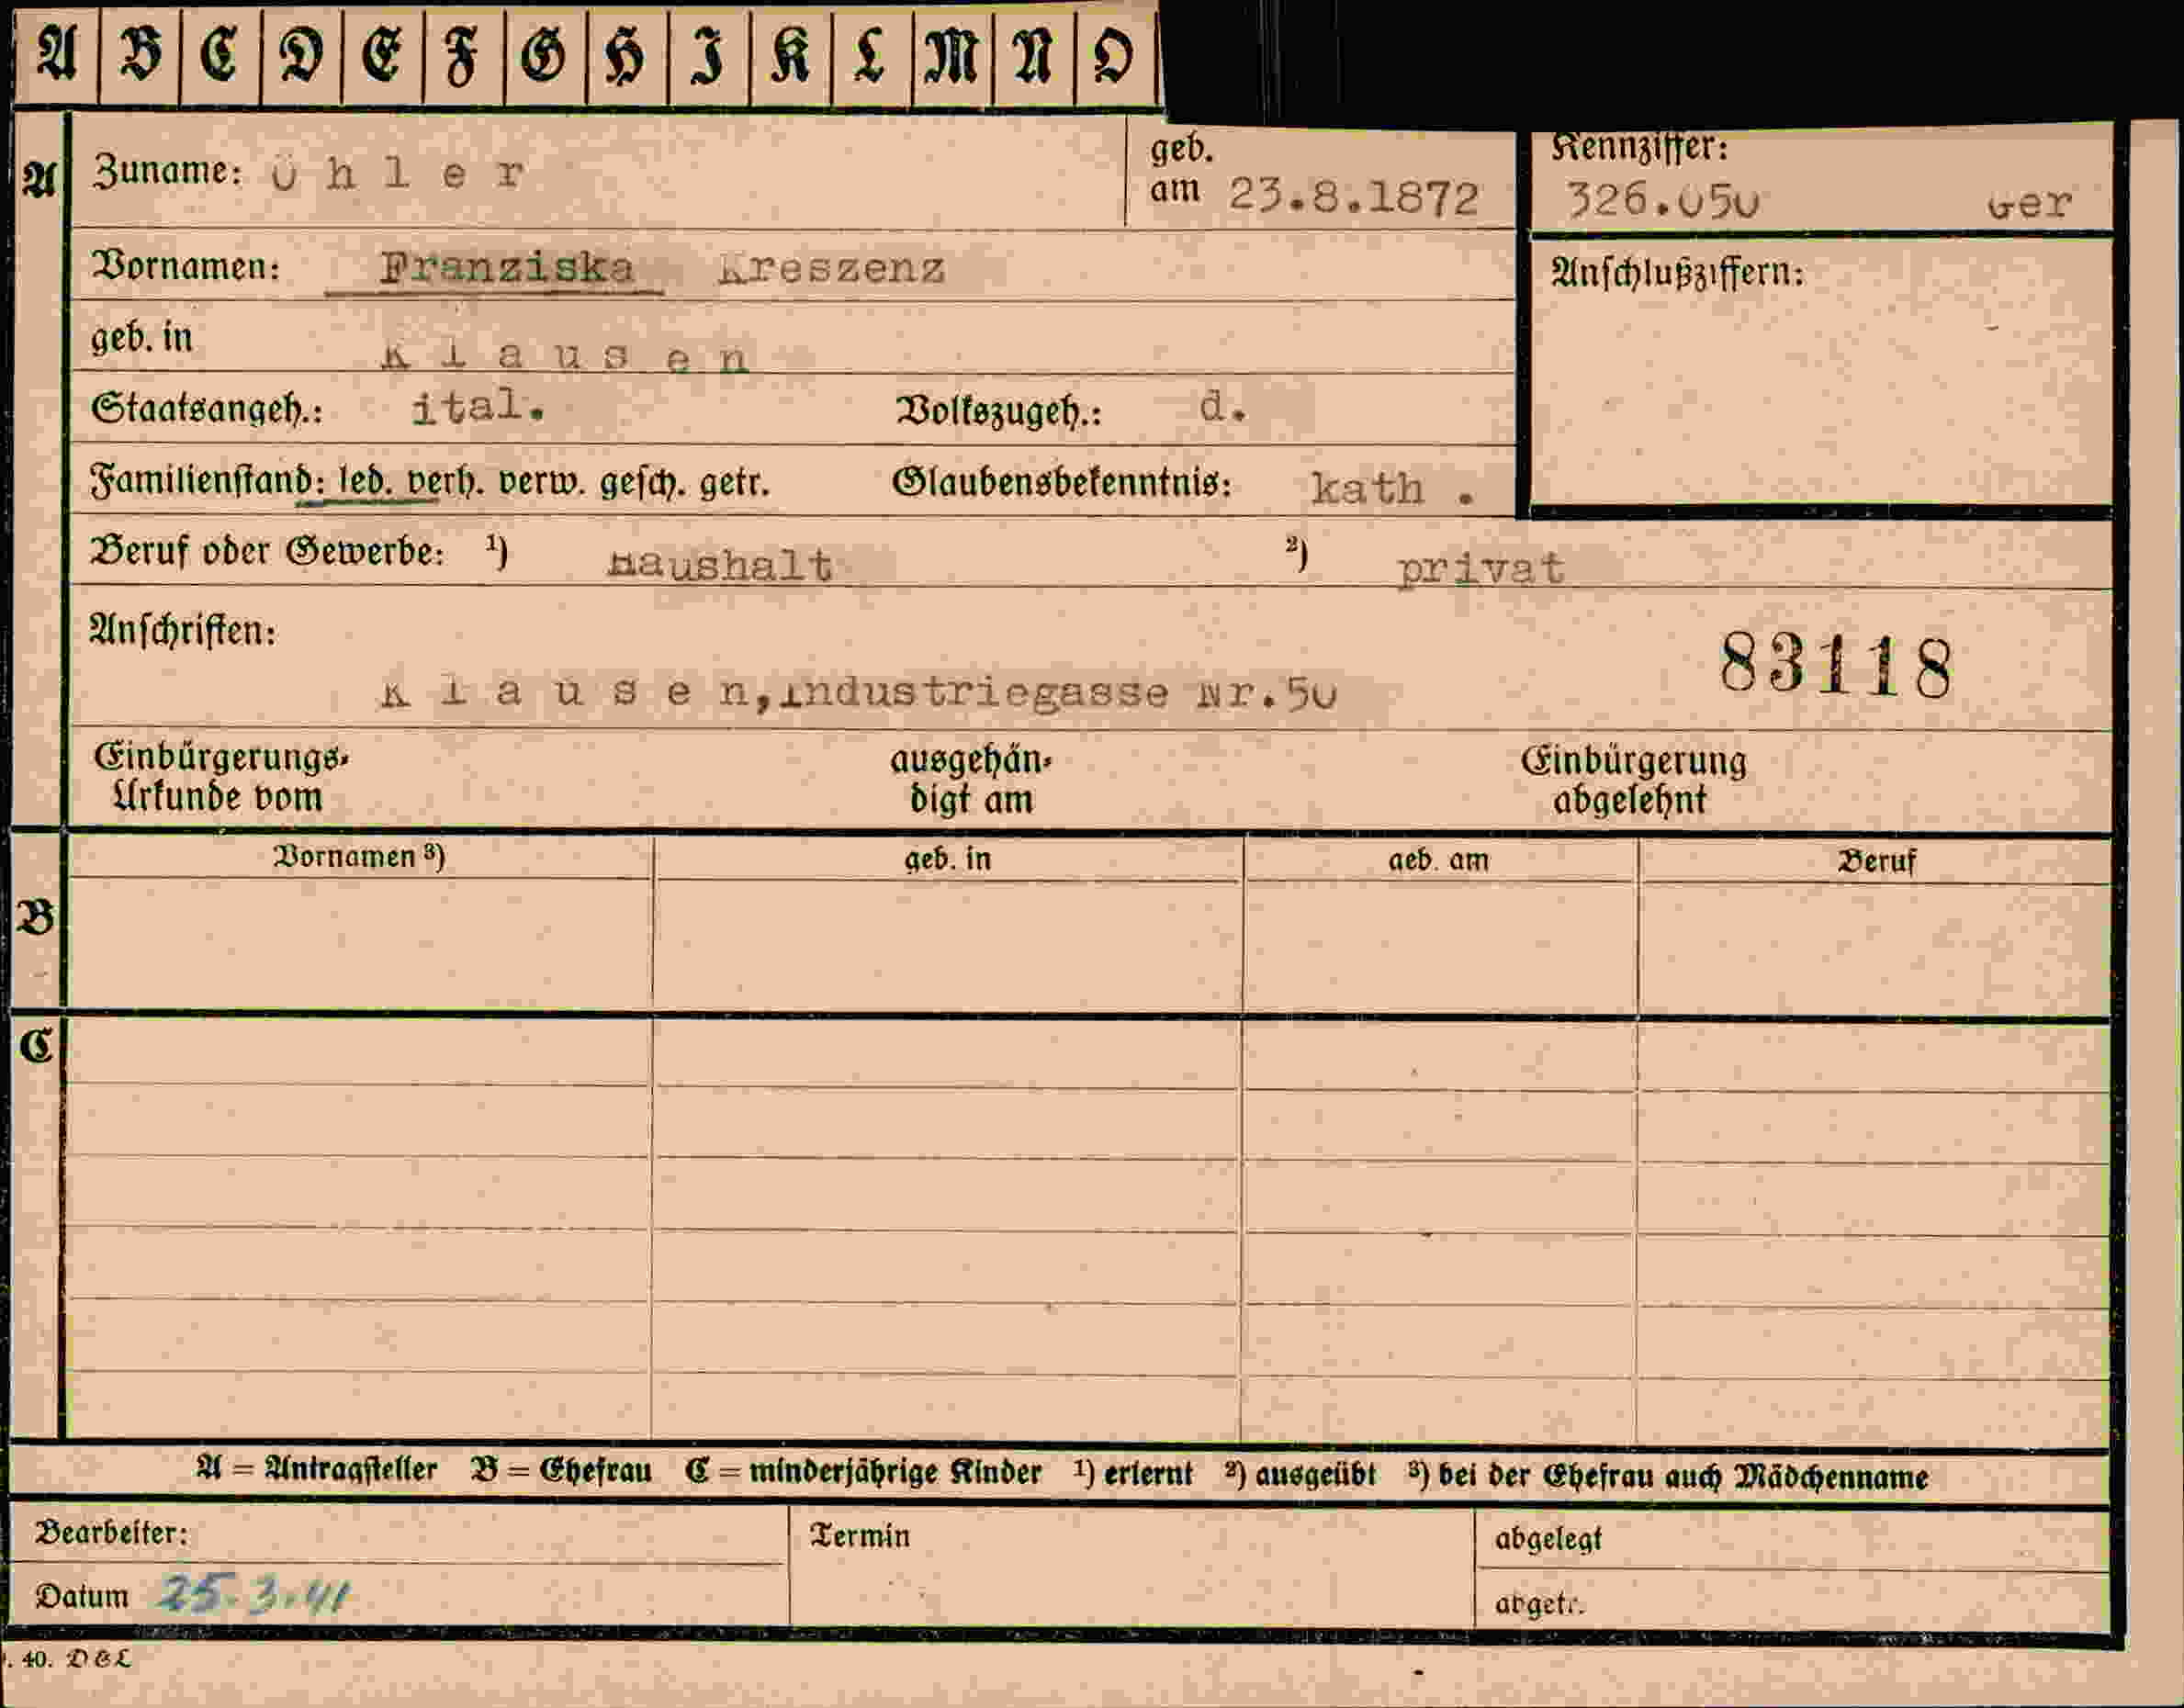 A B C D E F G H I K L M N O
A Zuname: Ü h l e r geb. am 23.8.1872 Kennziffer: 326.050 Ger
Vornamen: Franziska Kreszenz
Anschlußziffern:
geb. in K l a u s e n
Staatsangeh.: ital. Volkszugeh.: d.
Familienstand: led. verh. verw. gesch. getr. Glaubensbekenntnis: kath .
Beruf oder Gewerbe: ¹) Haushalt ²) privat
Anschriften:
83118
K l a u s e n,Industriegasse Nr.50
Einbürgerungs- ausgehän- Einbürgerung
Urkunde vom digt am abgelehnt
Vornamen ³) geb. in geb. am Beruf
B
C
A = Antragsteller B = Ehefrau C = minderjährige Kinder ¹) erlernt ²) ausgeübt ³) bei der Ehefrau auch Mädchenname
Bearbeiter: Termin abgelegt
Datum 25.3.41 abgetr.
. 40. D&L